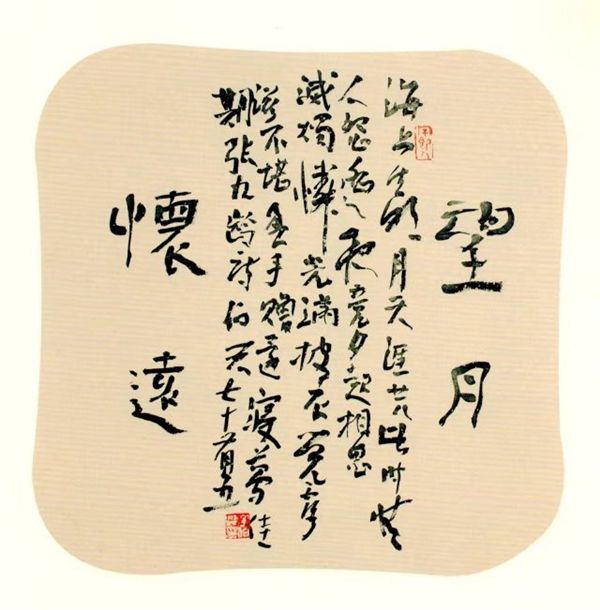 望月
海上生明月天涯共此时情
人怨遥夜竟夕起相思
滅燭憐光滿披衣覺露
滋不堪盈手贈還寢夢佳
期張九齡詩七十
懷遠